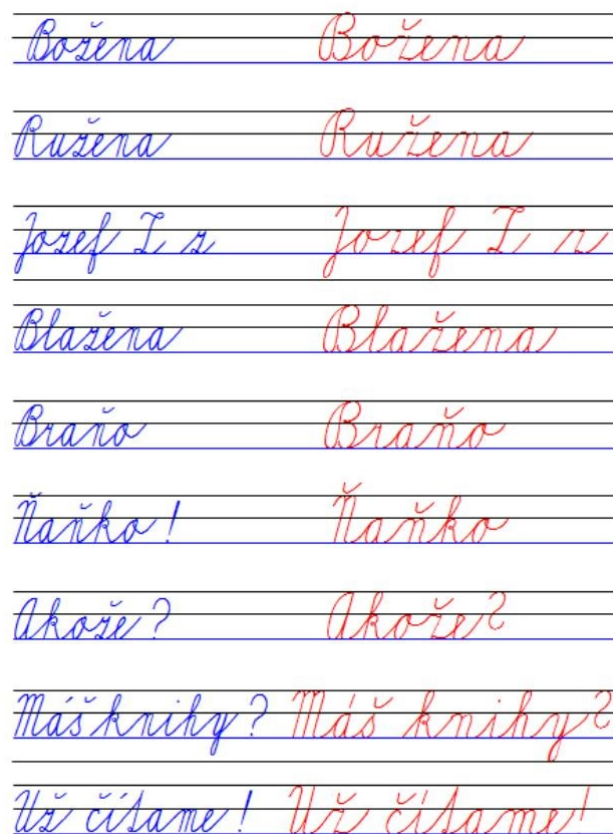 Božena Božena
Ružena Ružena
Jozef Z z Jozef Z z
Blažena Blažena
Braňo Braňo
Ňaňko! Ňaňko
Akože? Akože?
Máš knihy? Máš knihy?
Už čítame! Už čítame!